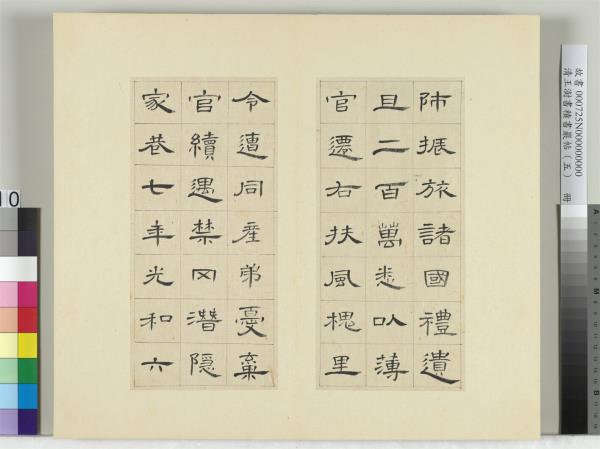 師振旅諸國禮遺
且二百萬悉以薄
官遷右扶風槐里
令遭同產弟憂棄
官續遇禁网潛隱
家巷七年光和六
故書 000725N000000000
清王澍書積書巖帖(五) 冊
10